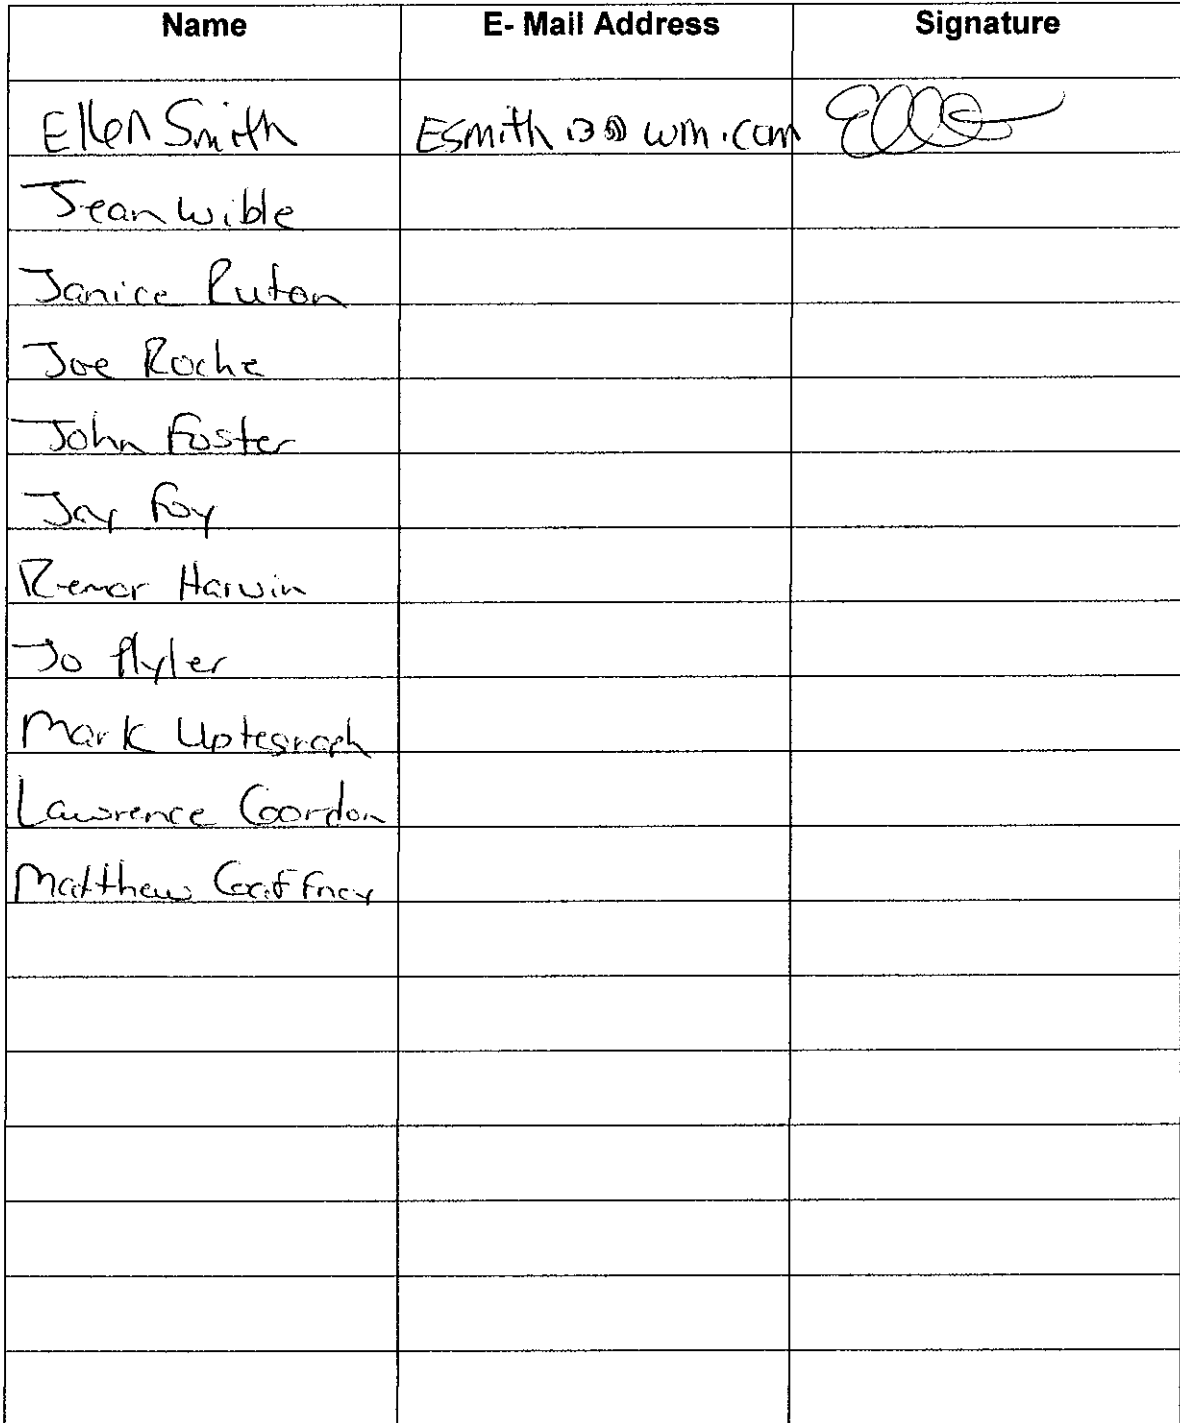 Name E- Mail Address Signature
Ellen Smith Esmith13@wm.com
Jean Wible
Janice Ruton
Joe Roche
John Foster
Jay Foy
Remor Harwin
Jo Plyler
Mark Uptegraph
Lawrence Gordon
Matthew Gaffney